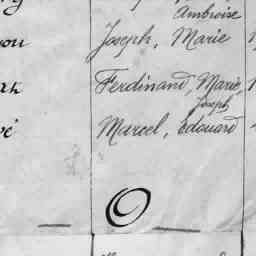 Ambroise
Joseph, Marie
Ferdinand, Marie,
Joseph
Marcel, Edouard